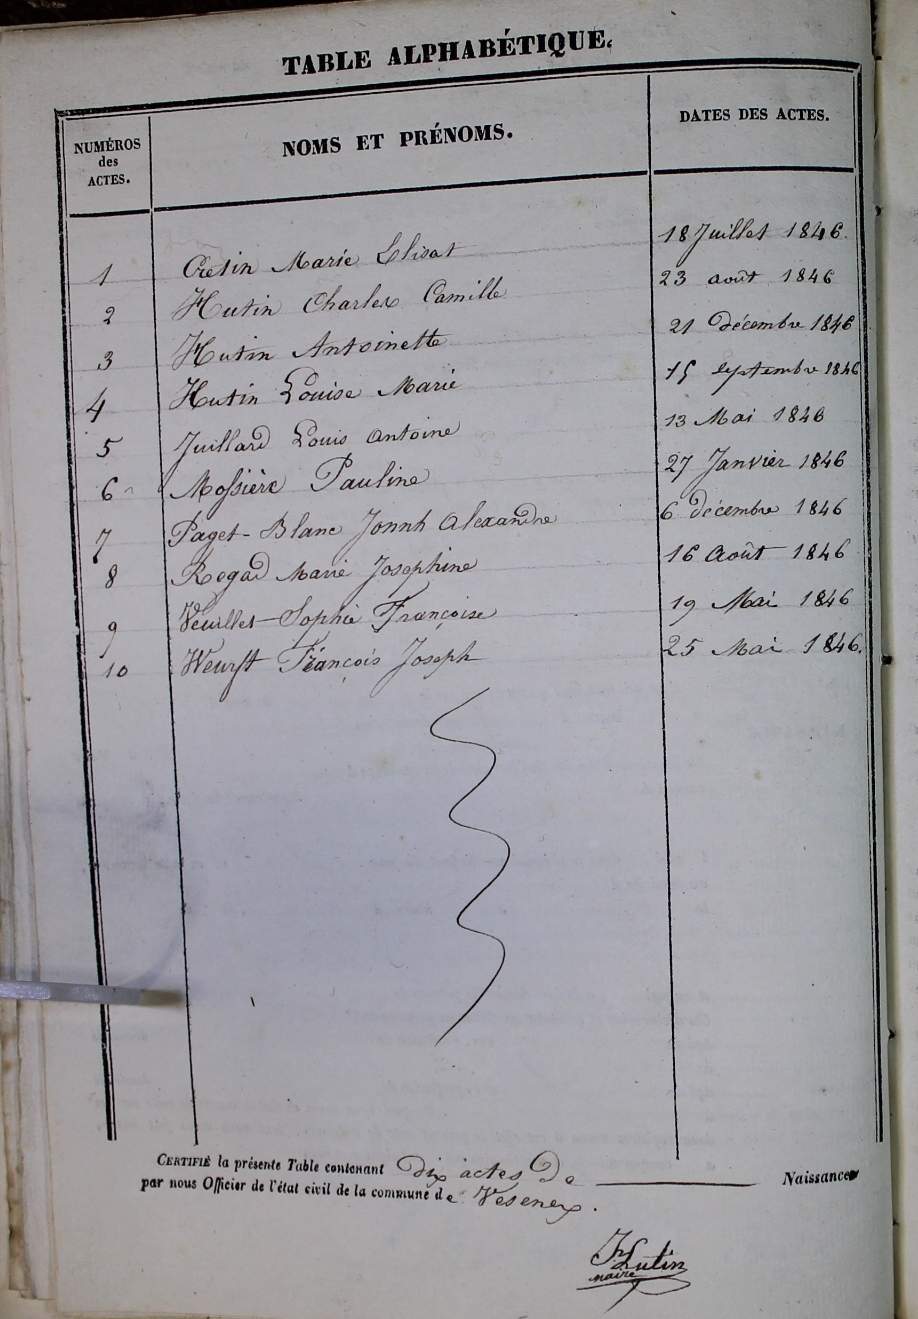 TABLE ALPHABÉTIQUE.
NUMÉROS des ACTES. NOMS ET PRÉNOMS. DATES DES ACTES.
1 Cretin Marie Elisat 18 Juillet 1846.
2 Hutin Charles Camille 23 août 1846
3 Hutin Antoinette 21 décembre 1846
4 Hutin Louise Marie 15 septembre 1846
5 Juillard Louis antoine 13 Mai 1846
6 Mossière Pauline 27 Janvier 1846
7 Paget-Blanc alexandre 6 décembre 1846
8 Regad Marie Josephine 16 août 1846
9 Veuillet Sophie Françoise 19 Mai 1846
10 Weurst François Joseph 25 Mai 1846.
CERTIFIÉ la présente Table contenant dix actes De Naissance
par nous Officier de l'état civil de la commune de Vesenex.
Hutin
maire